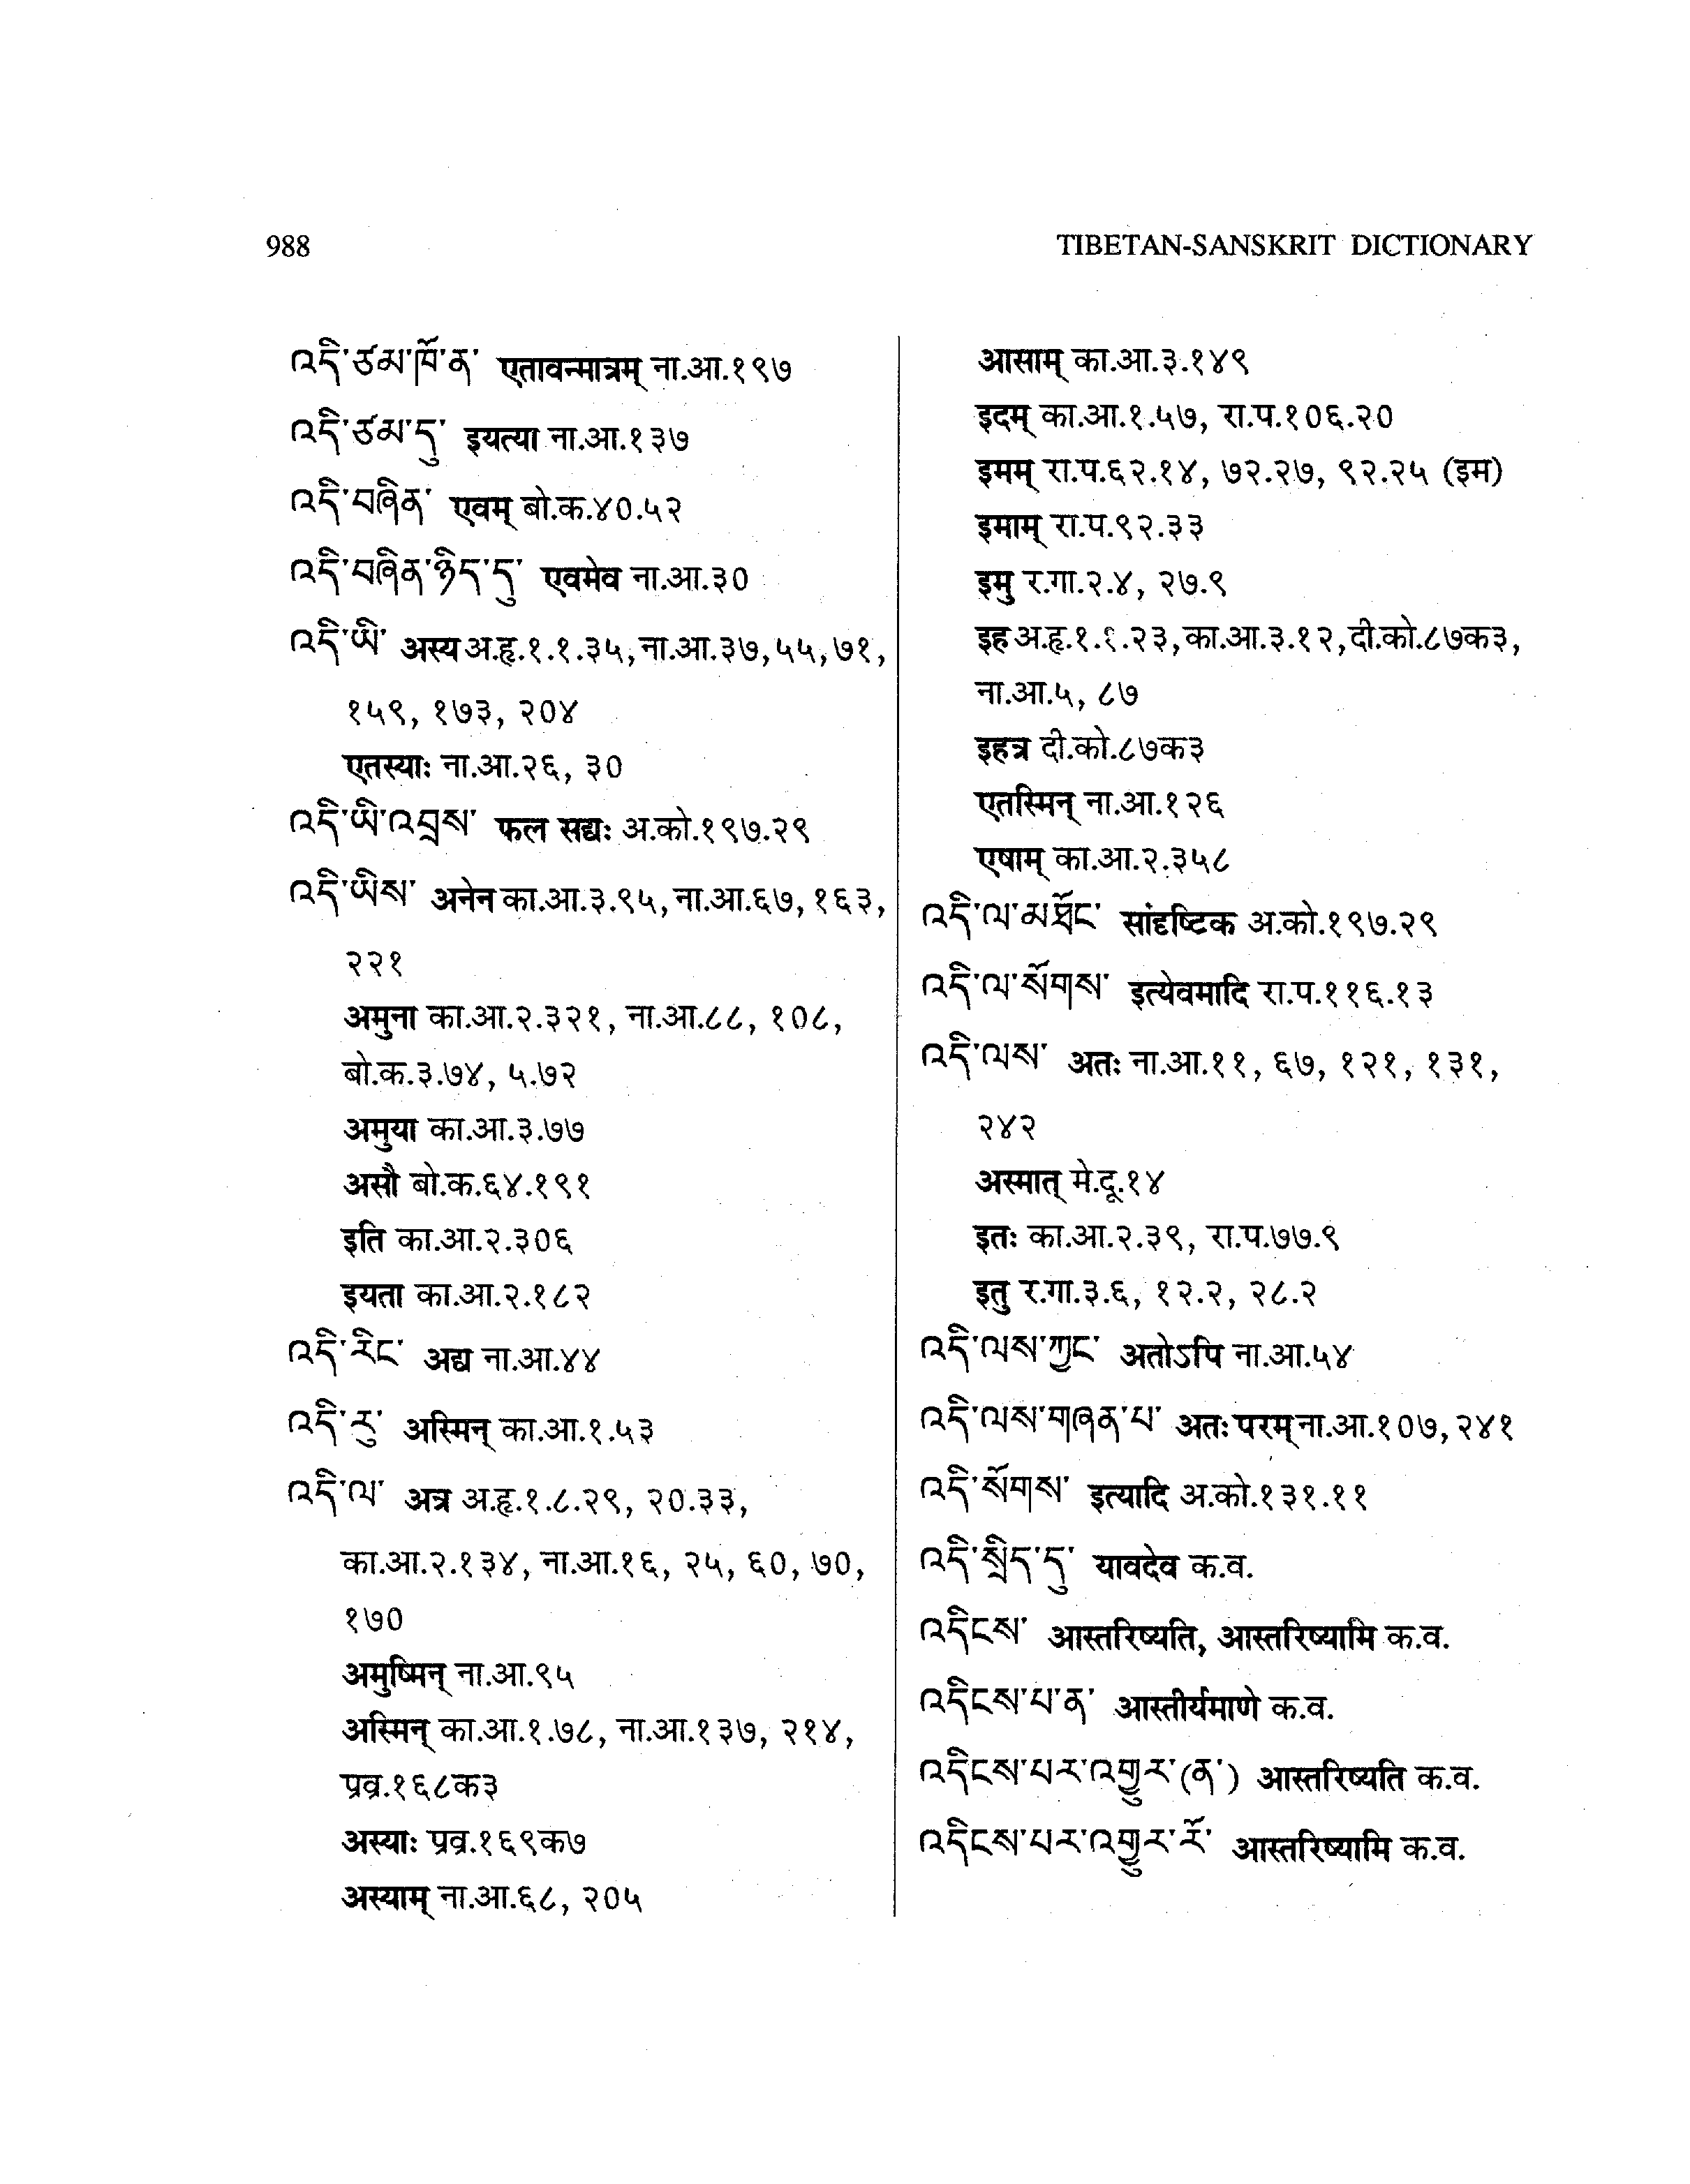 988
TIBETAN-SANSKRIT DICTIONARY
འདི་ཙམ་ཁོ་ན་ एतावन्मात्रम् ना.आ.१९७
འདི་ཙམ་དུ་ इयत्या ना.आ.१३७
འདི་བཞིན་ एवम् बो.क.४०.५२
འདི་བཞིན་ཉིད་དུ་ एवमेव ना.आ.३०
འདི་ཡི་ अस्य अ.हृ.१.१.३५, ना.आ.३७, ५५, ७१,
१५९, १७३, २०४
एतस्याः ना.आ.२६, ३०
འདི་ཡི་འབྲས་ फल सद्यः अ.को.१९७.२९
འདི་ཡིས་ अनेन का.आ.३.९५, ना.आ.६७, १६३,
२२१
अमुना का.आ.२.३२१, ना.आ.८८, १०८,
बो.क.३.७४, ५.७२
अमुया का.आ.३.७७
असौ बो.क.६४.१९१
इति का.आ.२.३०६
इयता का.आ.२.१८२
འདི་རིང་ अद्य ना.आ.४४
འདི་རུ་ अस्मिन् का.आ.१.५३
འདི་ལ་ अत्र अ.हृ.१.८.२९, २०.३३,
का.आ.२.१३४, ना.आ.१६, २५, ६०, ७०,
१७०
अमुष्मिन् ना.आ.९५
अस्मिन् का.आ.१.७८, ना.आ.१३७, २१४,
प्रव्र.१६८क३
अस्याः प्रव्र.१६९क७
अस्याम् ना.आ.६८, २०५
आसाम् का.आ.३.१४९
इदम् का.आ.१.५७, रा.प.१०६.२०
इमम् रा.प.६२.१४, ७२.२७, ९२.२५ (इम)
इमाम् रा.प.९२.३३
इमु र.गा.२.४, २७.९
इह अ.हृ.१.१.२३, का.आ.३.१२, दी.को.८७क३,
ना.आ.५, ८७
इहत्र दी.को.८७क३
एतस्मिन् ना.आ.१२६
एषाम् का.आ.२.३५८
འདི་ལ་མཐོང་ सांदृष्टिक अ.को.१९७.२९
འདི་ལ་སོགས་ इत्येवमादि रा.प.११६.१३
འདི་ལས་ अतः ना.आ.११, ६७, १२१, १३१,
२४२
अस्मात् मे.दू.१४
इतः का.आ.२.३९, रा.प.७७.९
इतु र.गा.३.६, १२.२, २८.२
འདི་ལས་ཀྱང་ अतोऽपि ना.आ.५४
འདི་ལས་གཞན་པ་ अतः परम् ना.आ.१०७, २४१
འདི་སོགས་ इत्यादि अ.को.१३१.११
འདི་སྲིད་དུ་ यावदेव क.व.
འདིངས་ आस्तरिष्यति, आस्तरिष्यामि क.व.
འདིངས་པ་ན་ आस्तीर्यमाणे क.व.
འདིངས་པར་འགྱུར་(ན་) आस्तरिष्यति क.व.
འདིངས་པར་འགྱུར་རོ་ आस्तरिष्यामि क.व.